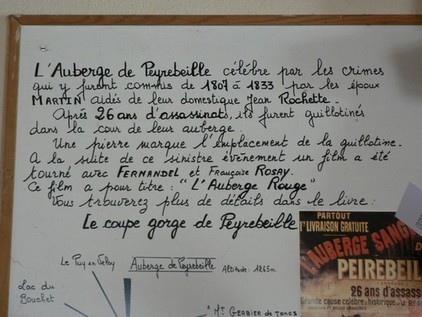 L'Auberge de Peyrebeille célèbre par les crimes
qui y furent commis de 1807 à 1833 par les époux
MARTIN aidés de leur domestique Jean Rochette.
Après 26 ans d'assassinats, ils furent guillotinés
dans la cour de leur auberge.
Une pierre marque l'emplacement de la guillotine.
A la suite de ce sinistre évènement un film a été
tourné avec FERNANDEL et Françoise ROSAY.
Ce film a pour titre : "L'Auberge Rouge"
Vous trouverez plus de détails dans le livre :
Le coupe gorge de Peyrebeille
PARTOUT
1re LIVRAISON GRATUITE
L'AUBERGE SANG
PEIREBEIL
26 ans d'assass
Grande cause célèbre & historique
Le Puy en Velay
Auberge de Peyrebeille
Altitude : 1265m
Lac du
Bouchet
Mt GERBIER DE JONCS